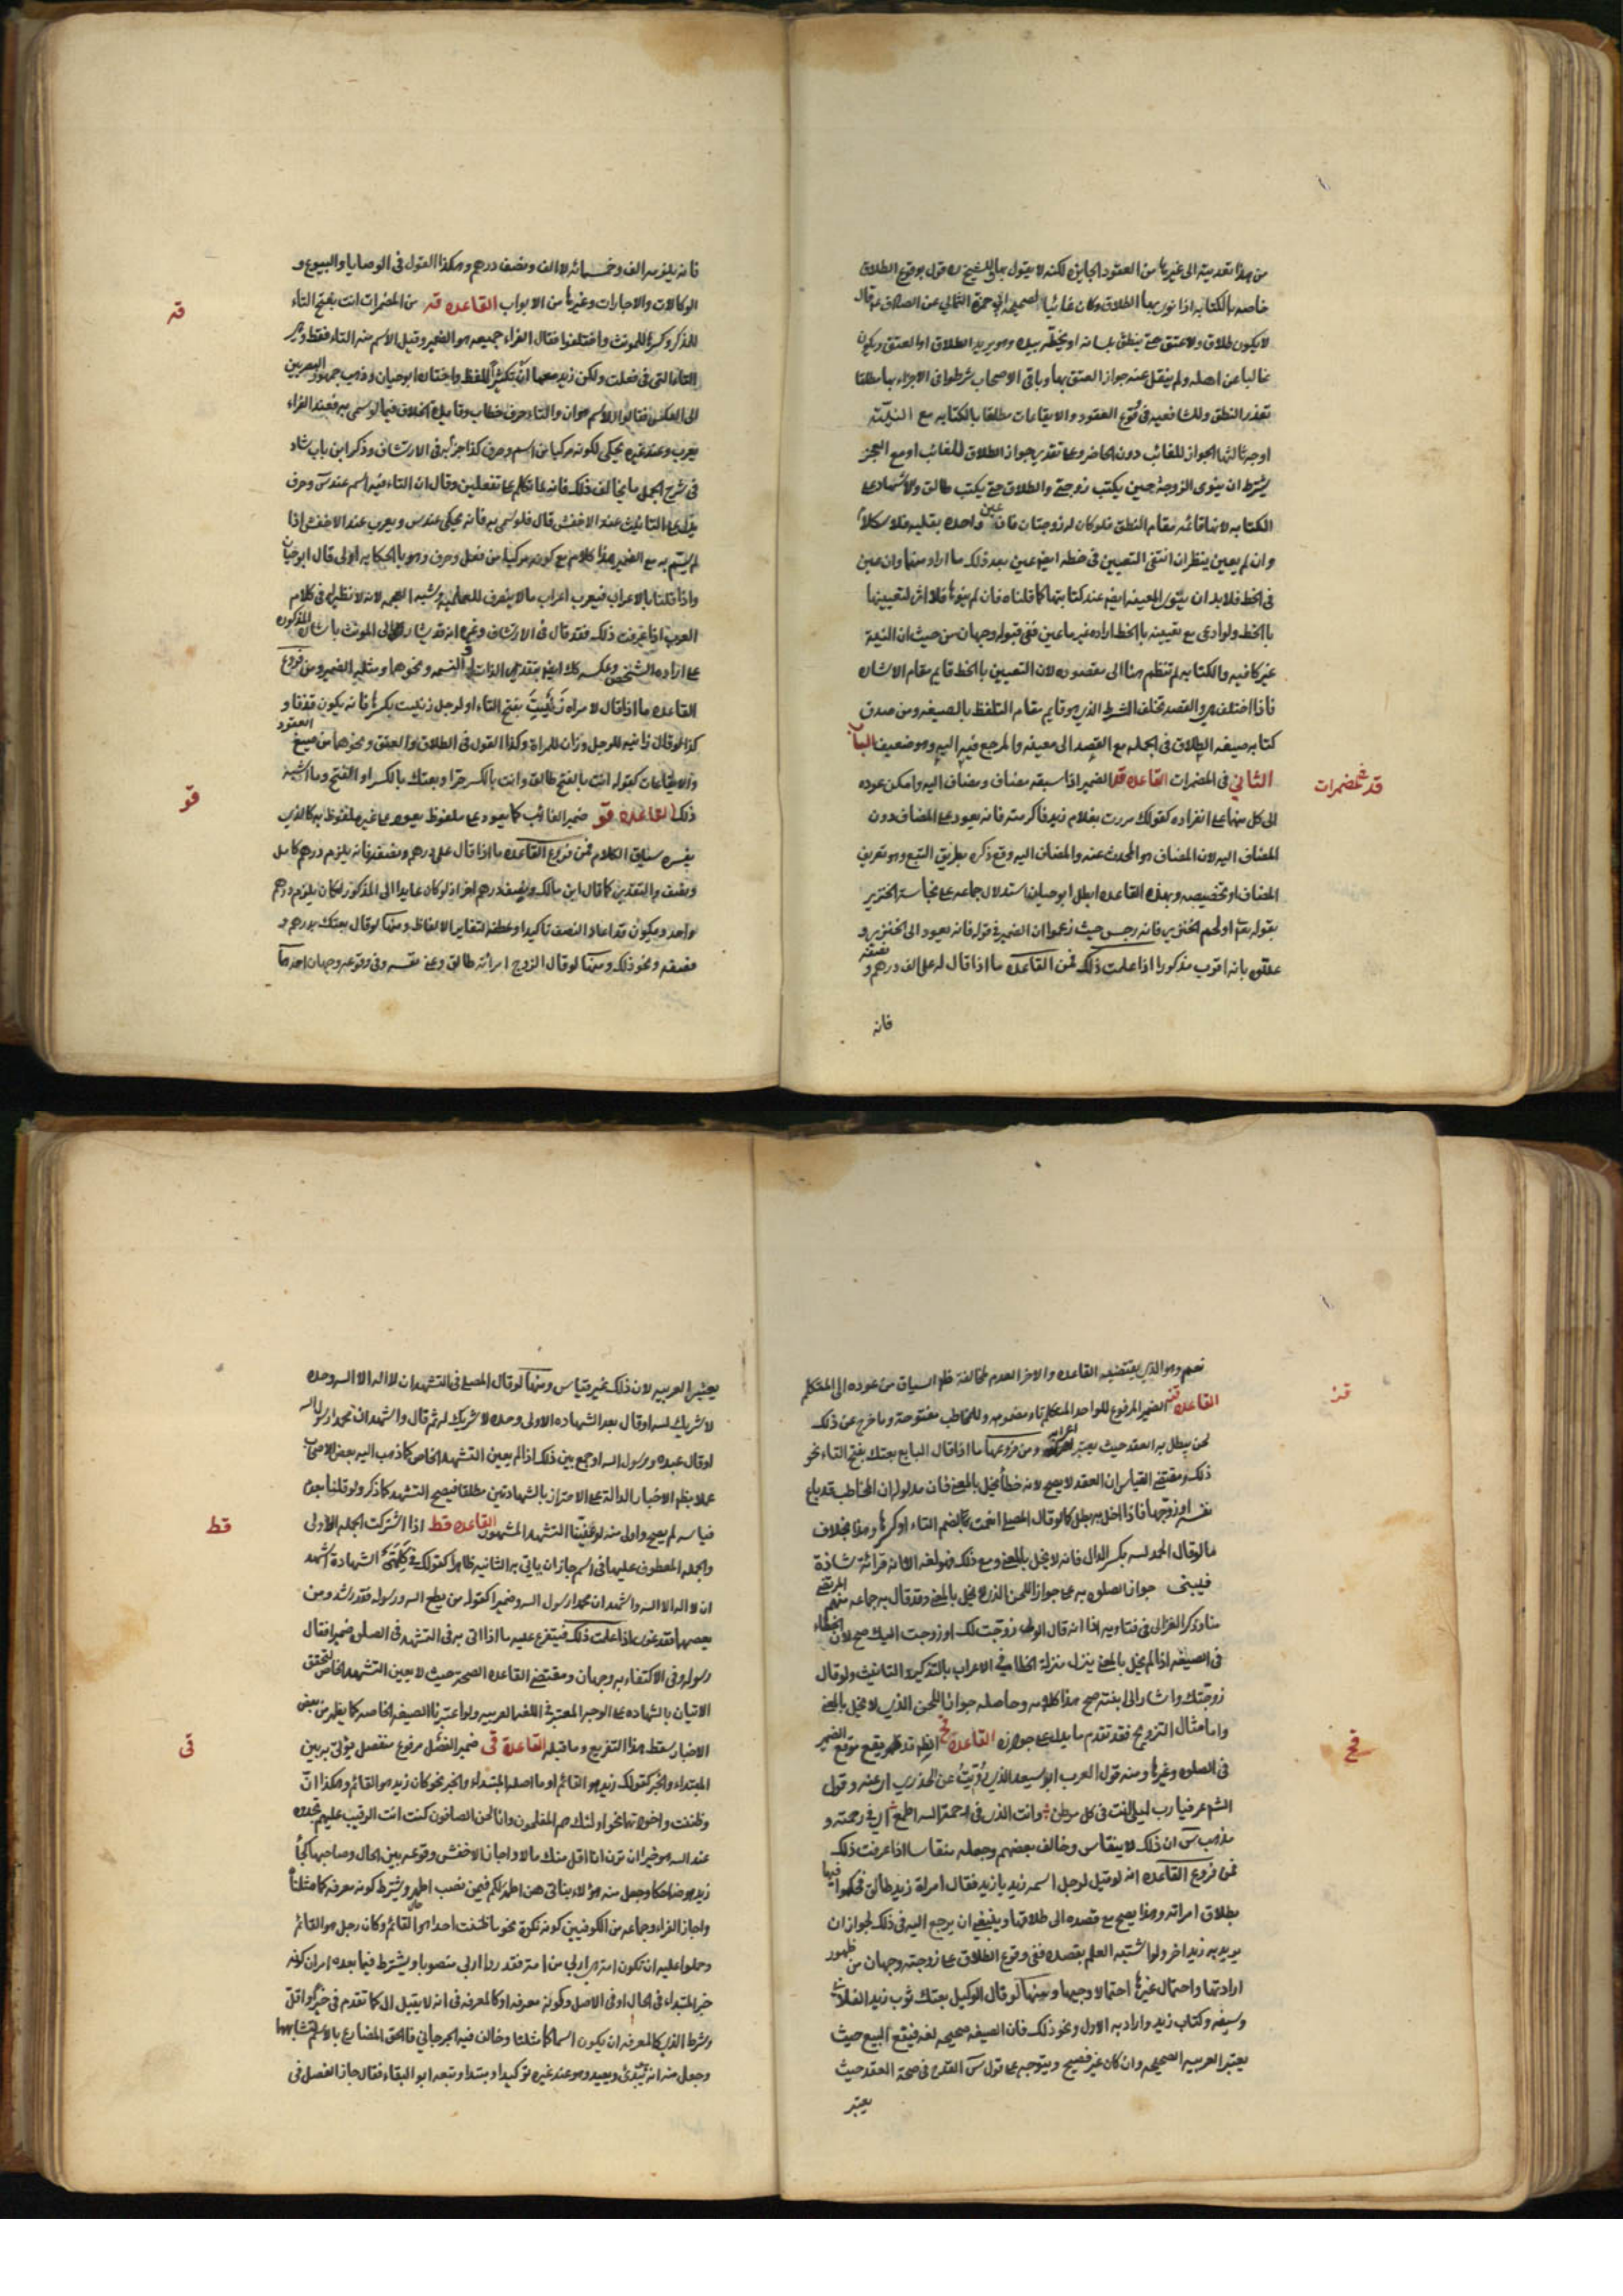 من هذا تعديته الى غيرها من العقود الجايزه لكنه لا يقول بها وللشيخ ره قول بوقوع الطلاق
خاصه بالكتابه اذا نوى بها الطلاق وكان غائبا لصحيحه ابي حمزة الثمالي عن الصادق ع قال
لا يكون طلاق ولا عتق حتى ينطق بلسانه او يخطه بيده وهو يريد الطلاق او العتق ويكون
غائبا عن اهله ولم ينقل عنه جواز العتق بها وباقي الاصحاب شرطوا في الاجزاء بها مطلقا
تعذر النطق وللشافعيه في وقوع العقود والايقاعات مطلقا بالكتابه مع النية
اوجه ثالثها الجواز للغائب دون الحاضر وعلى تقدير جواز الطلاق للغائب او مع العجز
يشترط ان ينوى الزوجة حين يكتب زوجتي والطلاق حتى يكتب طالق والاشهاد على
الكتابه لانها قائمه مقام النطق فلو كان له زوجتان فان عين واحده بقلبه فلا اشكال
وان لم يعين ينظر ان انتفى التعيين في خطه ايضا عين بعد ذلك ما اراد منها وان عين
في الخط فلا بد ان ينوى المعينه ايضا عند كتابتها كما قلناه فان لم ينوها فلا اثر لتعيينها
بالخط ولو ادعى مع تعيينه بالخط اراده غير ما عين ففي قبوله وجهان من حيث ان النية
غير كافيه والكتابه لم تنظم هنا الى مقصوده لان التعيين بالخط قايم مقام الاشاره
فاذا اختلف هو والقصد تخلف الشرط الذي هو قايم مقام التلفظ بالصيغه ومن صدق
كتابه صيغه الطلاق في الجمله مع القصد الى معينه والمرجع فيه اليه وهو ضعيف الباب
الثاني في المضمرات القاعده قد الضمير اذا سبقه مضاف ومضاف اليه وامكن عوده
قد المضمرات
الى كل منهما على انفراده كقولك مررت بغلام زيد فاكرمته فانه يعود على المضاف دون
المضاف اليه لان المضاف هو المحدث عنه والمضاف اليه وقع ذكره بطريق التبع وهو تعريف
المضاف او تخصيصه وبهذه القاعده ابطل ابو حيان استدلال جماعه على نجاسة الخنزير
بقوله تع او لحم الخنزير فانه رجس حيث زعموا ان الضمير في قوله فانه يعود الى الخنزير و
عللوه بانه اقرب مذكورا اذا علمت ذلك فمن القاعده ما اذا قال له علي الف درهم ونصفه
فانه
فانه يلزمه الف وخمسمائه لا الف ونصف درهم وهكذا القول في الوصايا والبيوع و
الوكالات والاجارات وغيرها من الابواب القاعده قه من المضمرات انت بفتح التاء
قه
للمذكر وكسرها للمونث واختلفوا فقال الفراء جميعه هو الضمير وقيل الاسم منه التاء فقط وهي
التاء التي في فعلت ولكن زيد معها ان تكثيرا للفظ واختاره ابو حيان وذهب جمهور البصريين
الى العكس فقالوا الاسم هو ان والتاء حرف خطاب وفايدة الخلاف فيما لو سمى به فعند الفراء
يعرب وعند غيره يحكى لكونه مركبا من اسم وحرف كذا جزم به في الارتشاف وذكر ابن باب شاد
في شرح الجمل ما يخالف ذلك فانه لما تكلم على تفعلين وقال ان التاء فيه اسم عند س وحرف
يدل على التانيث عند الاخفش قال فلو سمى به فانه يحكى عند س ويعرب عند الاخفش اذا
لم يسم به مع الضمير هذا كلامه مع كونه مركبا من فعل وحرف وهو بالحكايه اولى قال ابو حيان
واذا قلنا بالاعراب فيعرب اعراب ما لا ينصرف للعلميه وشبه العجمه لانه لا نظير له في كلام
العرب اذا عرفت ذلك فقد قال في الارتشاف وغيره انه قد يشار الى المونث باشارة المذكور
على اراده الشخص وعكسه كذلك ايضا بتقدير الذات او النسمه ونحوهما ومثله الضمير ومن فروع
القاعده ما اذا قال لامراه زنيت بفتح التاء او لرجل زنيت بكسرها فانه يكون قذفا و
كذا لو قال زانيه للرجل وزان للمراة وكذا القول في الطلاق والعتق ونحوهما من صيغ العقود
والايقاعات كقوله انت بالفتح طالق وانت بالكسر حر او بعتك بالكسر او الفتح وما اشبه
ذلك القاعده قو ضمير الغائب كما يعود على ملفوظ يعود على غير ملفوظ به كالذي
قو
يفسره سياق الكلام فمن فروع القاعده ما اذا قال علي درهم ونصفه فانه يلزم درهم كامل
ونصف والتقدير كما قال ابن مالك ونصف درهم اخر اذ لو كان عايدا الى المذكور لكان يلزمه درهم
واحد ويكون قد اعاد النصف تاكيدا وعطفه لتغاير الالفاظ ومنها لو قال بعتك بدرهم و
نصفه ونحو ذلك ومنها لو قال الزوج امرأته طالق وعنى نفسه وفي وقوعه وجهان احدهما
نعم وهو الذي يقتضيه القاعده والاخر العدم لمخالفة نظم السياق من عوده الى المتكلم
القاعده قز الضمير المرفوع للواحد المتكلم تاء مضمومه وللمخاطب مفتوحة وما خرج عن ذلك
قز
لحن يبطل به العقد حيث يعتبر اعرابه ومن فروعها ما اذا قال البايع بعتك بفتح التاء نحو
ذلك ومقتضى القياس ان العقد لا يصح لانه خطأ يخل بالمعنى فان مدلوله ان المخاطب قد باع
نفسه او زوجها فاذا اخل به بطل كما لو قال المصلي انعمت بضم التاء او كسرها وهذا بخلاف
ما لو قال الحمد لله بكسر الدال فانه لا يخل بالمعنى ومع ذلك فهو لغه الا انه قرائة شاذة
فيبنى جواز الصلوه به على جواز اللحن الذي لا يخل بالمعنى وقد قال به جماعه منهم المرتضى
منا وذكر الغزالى في فتاويه اذا انه قال الولي زوجت لك او زوجت اليك صح لان الخطاء
في الصيغه اذا لم يخل بالمعنى ينزل منزلة الخطا في الاعراب بالتذكير والتانيث ولو قال
زوجتك واشار الى ابنته صح هذا كلامه وحاصله جواز اللحن الذي لا يخل بالمعنى
واما مثال التزويج فقد تقدم ما يدل على جوازه القاعده قح الظاهر قد يقع موقع الضمير
قح
في الصلوه وغيرها ومنه قول العرب ابو سعيد الذي رويت عن الخدري اي عنه وقول
الشاعر فيا رب ليلى انت في كل موطن وانت الذي في رحمة الله اطمع اي في رحمته و
مذهب س ان ذلك لا ينقاس وخالف بعضهم وجعله منقاسا اذا عرفت ذلك
فمن فروع القاعده انه لو قيل لرجل اسمه زيد يا زيد فقال امراة زيد طالق فحكموا فيها
بطلاق امراته وهذا يصح مع قصده الى طلاقها وينبغي ان يرجع اليه في ذلك لجواز ان
يريد به زيدا اخر ولو اشتبه العلم بقصده ففي وقوع الطلاق على زوجته وجهان من ظهور
ارادتها واحتمال غيرها احتمالا وجيها ومنها لو قال الوكيل بعتك ثوب زيد الفلاني
وسيفه وكتاب زيد واراد به الاول ونحو ذلك فان الصيغه صحيحه لغه فيقع البيع حيث
يعتبر العربيه الصحيحه وان كان غير فصيح ويتوجه على قول س القدح في صحة العقد حيث
يعتبر
يعتبر العربيه لان ذلك غير قياس ومنها لو قال المصلي في التشهد ان لا اله الا الله وحده
لا شريك له او قال بعد الشهاده الاولى وحده لا شريك له ثم قال واشهد ان محمدا رسول الله
او قال عبده ورسول الله او جمع بين ذلك اذا لم يعين التشهد الخاص كما ذهب اليه بعض الاصحاب
عملا بظاهر الاخبار الدالة على الاجتزاز بالشهادتين مطلقا فيصح التشهد كما ذكر ولو قلنا بعدم
قياسه لم يصح واولى منه لو عينا التشهد المشهور القاعده قط اذا اشتركت الجمله الاولى
قط
والجمله المعطوف عليها في اسم جاز ان ياتي به في الثانيه ظاهرا كقولك في كلمتي الشهادة اشهد
ان لا اله الا الله واشهد ان محمدا رسول الله وضميرا كقوله من يطع الله ورسوله فقد رشد ومن
يعصهما فقد غوى اذا علمت ذلك فيتفرع عليه ما اذا اتى به في التشهد في الصلوه ضميرا فقال
رسوله وفي الاكتفاء به وجهان ومقتضى القاعده الصحة حيث لا يعين التشهد الخاص لتحقق
الاتيان بالشهاده على الوجه المعتبر في اللغه العربيه ولو اعتبرنا الصيغه الخاصه كما يظهر من بعض
الاخبار سقط هذا التفريع وما قبله القاعدة قى ضمير الفصل مرفوع منفصل يؤتى به بين
قى
المبتداء والخبر كقولك زيد هو القائم او ما اصله المبتداء والخبر نحو كان زيد هو القائم وهكذا ان
وظننت واخواتهما نحو اولئك هم المفلحون وانا لنحن الصافون كنت انت الرقيب عليهم تجدوه
عند الله هو خيرا ان ترن انا اقل منك مالا واجاز الاخفش وقوعه بين الحال وصاحبها كجاء
زيد هو ضاحكا وجعل منه هؤلاء بناتي هن اطهر لكم فيمن نصب اطهر وشرط كونه معرفه كما مثلنا
واجاز الفراء وجماعه من الكوفيين كونه نكرة نحو ما ظننت احدا هو القائم وكان رجل هو القائم
وحملوا عليه ان تكون امة هي اربى من امة فقدروا اربى منصوبا ويشترط فيما بعده امران كونه
خبر المبتداء في الحال او في الاصل وكونه معرفه او كالمعرفه في انه لا يقبل ال كما تقدم في خير او اقل
وشرط الذي كالمعرفه ان يكون اسما كما مثلنا وخالف فيه الجرجاني فالحق المضارع بالاسم لتشابههما
وجعل منه انه يبدئ ويعيد وهو عند غيره توكيد او مبتدا وتبعه ابو البقاء فقال جاز الفصل في